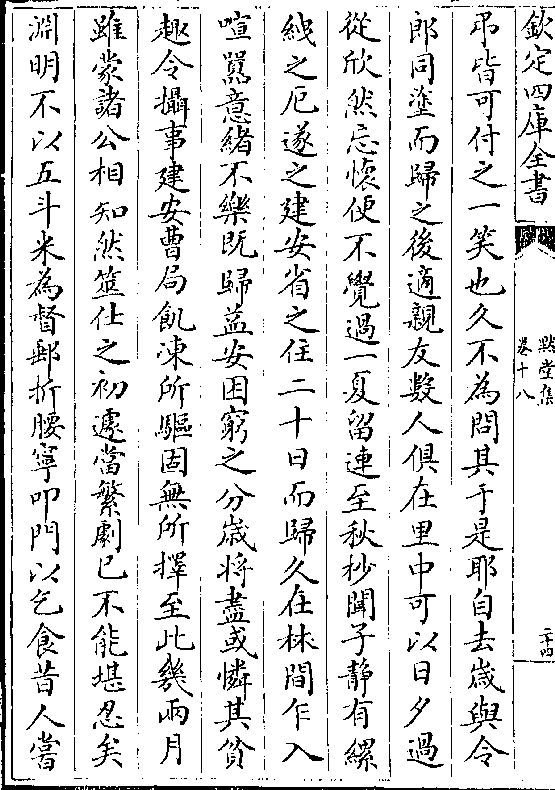 欽定四庫全書
默堂集
卷十八
二十四
弔皆可付之一笑也久不為問其于是耶自去歲與令
郎同塗而歸之後適親友數人俱在里中可以日夕過
從欣然忘懷便不覺過一夏留連至秋杪聞子静有縲
絏之厄遂之建安省之住二十日而歸久在林間乍入
喧囂意緒不樂既歸益安困窮之分歲将盡或憐其貧
趣令攝事建安曹局飢凍所驅固無所擇至此幾兩月
雖蒙諸公相知然筮仕之初遽當繁劇已不能堪忍矣
淵明不以五斗米為督郵折腰寧叩門以乞食昔人嘗